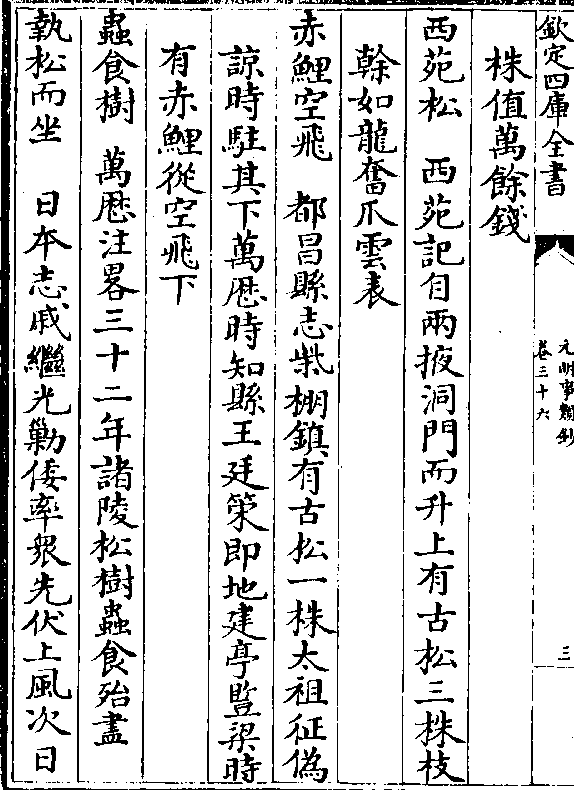 欽定四庫全書
元明事類鈔
卷三十六
三
株值萬餘錢
西苑松　西苑記自兩掖洞門而升上有古松三株枝
榦如龍奮爪雲表
赤鯉空飛　都昌縣志柴棚鎮有古松一株太祖征偽
諒時駐其下萬厯時知縣王廷策即地建亭豎梁時
有赤鯉從空飛下
蟲食樹　萬厯注畧三十二年諸陵松樹蟲食殆盡
執松而坐　日本志戚繼光勦倭率衆先伏上風次日